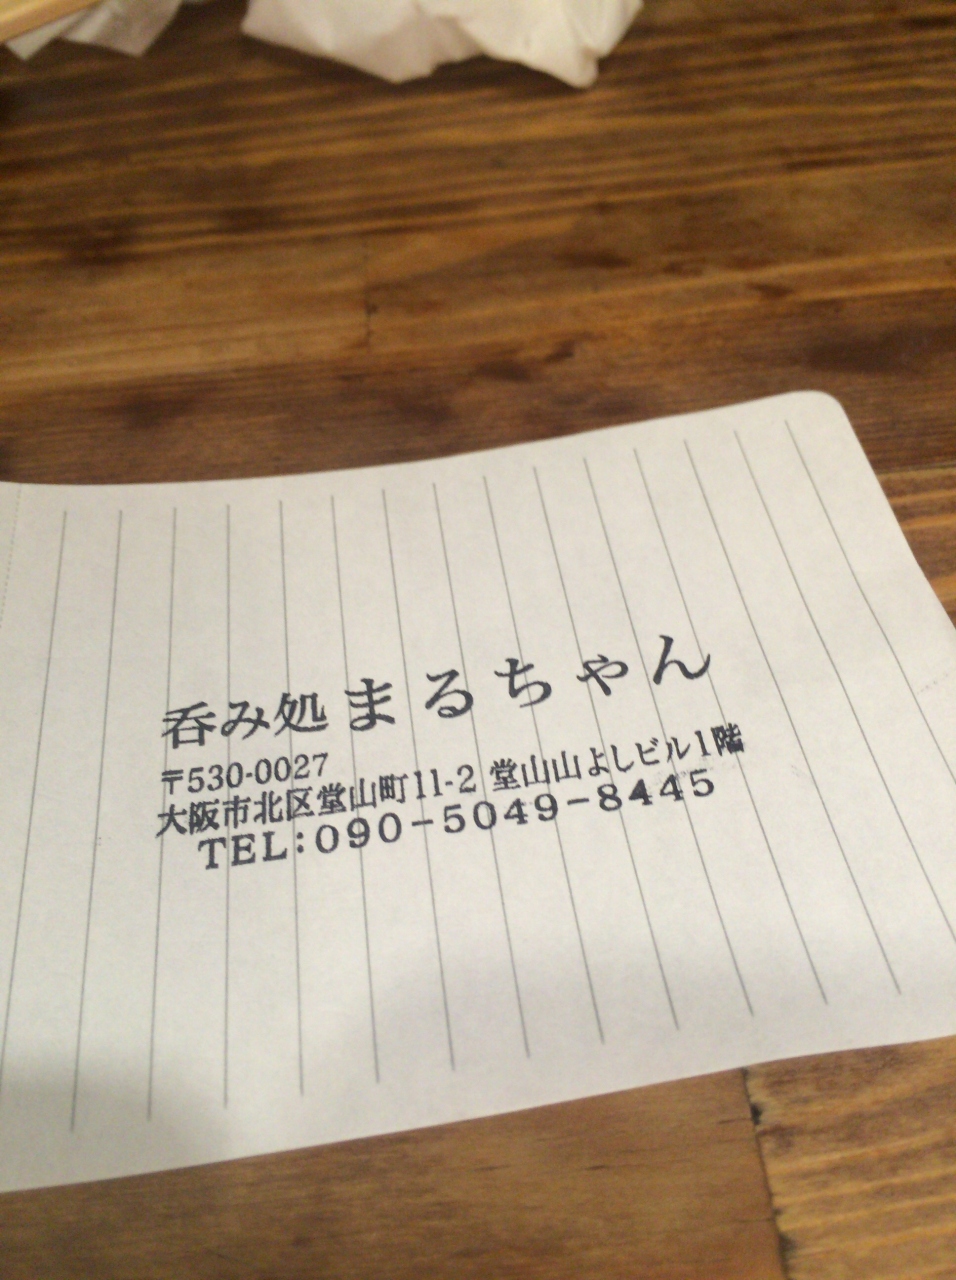 呑み処まるちゃん
〒530-0027
大阪市北区堂山町11-2 堂山山よしビル1階
TEL:090-5049-8445